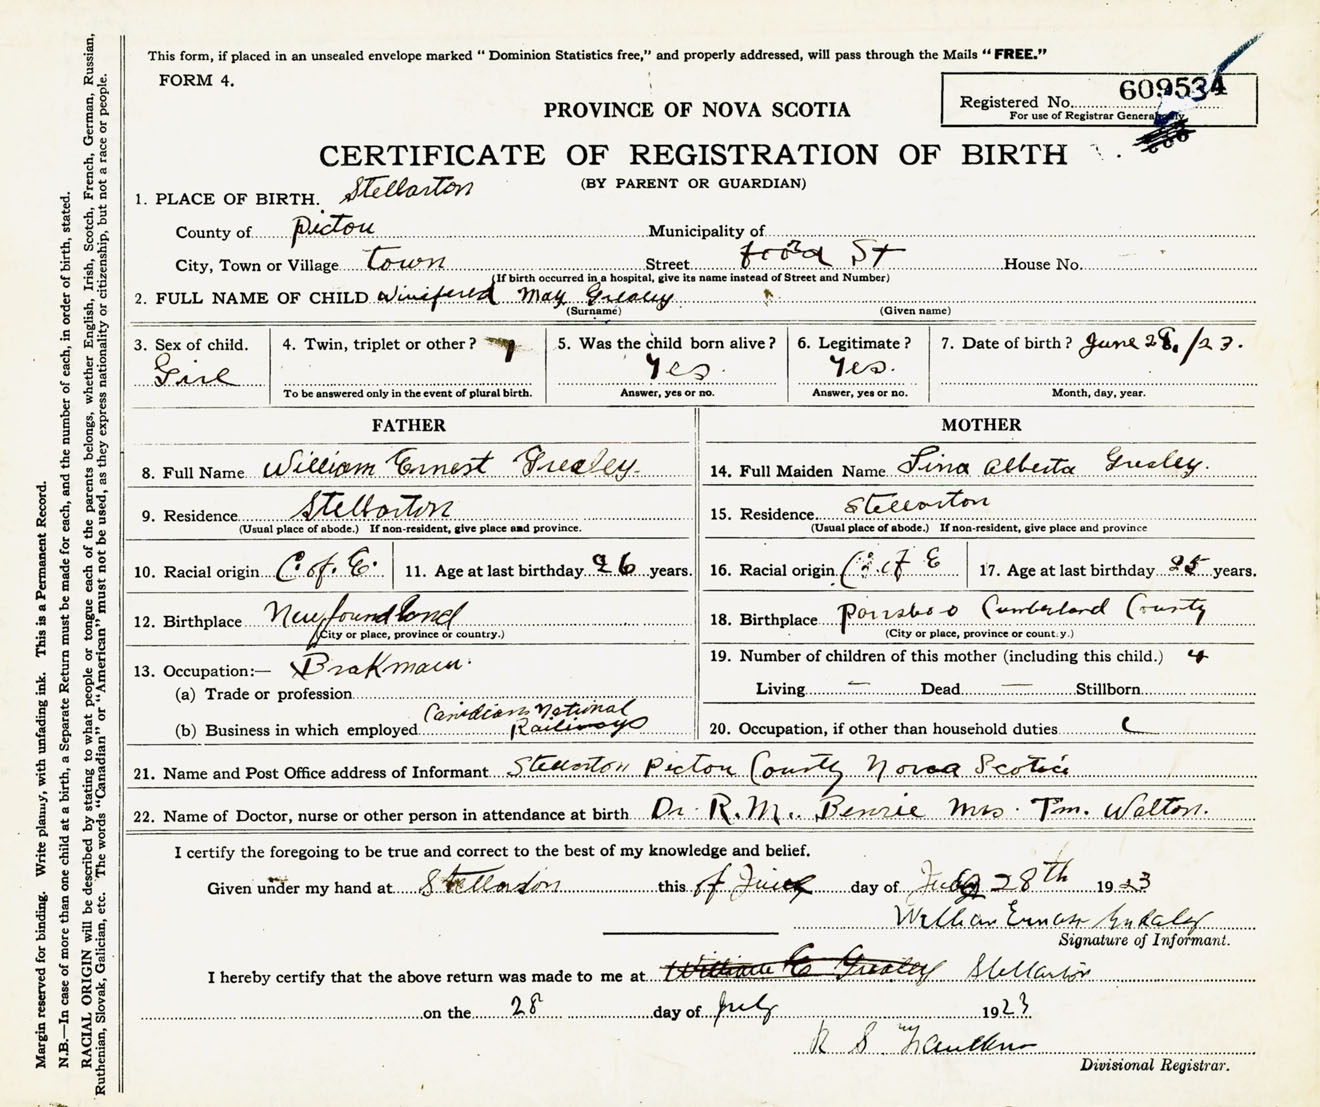 This form, if placed in an unsealed envelope marked “ Dominion Statistics free,” and properly addressed, will pass through the Mails “ FREE.”
FORM 4.
Registered No. 609534
For use of Registrar General only
PROVINCE OF NOVA SCOTIA
CERTIFICATE OF REGISTRATION OF BIRTH
(BY PARENT OR GUARDIAN)
1. PLACE OF BIRTH. Stellarton
County of Pictou Municipality of
City, Town or Village town Street foord St House No.
(If birth occurred in a hospital, give its name instead of Street and Number)
2. FULL NAME OF CHILD Winifered May Grealey
(Surname) (Given name)
3. Sex of child. 4. Twin, triplet or other ? 5. Was the child born alive ? 6. Legitimate ? 7. Date of birth ? June 28, /23.
Girl Yes. Yes.
To be answered only in the event of plural birth. Answer, yes or no. Answer, yes or no. Month, day, year.
FATHER MOTHER
8. Full Name William Ernest Grealey. 14. Full Maiden Name Lina Alberta Grealey.
9. Residence Stellarton 15. Residence Stellarton
(Usual place of abode.) If non-resident, give place and province. (Usual place of abode.) If non-resident, give place and province
10. Racial origin C. of. E. 11. Age at last birthday 26 years. 16. Racial origin C. of E 17. Age at last birthday 25 years.
12. Birthplace Newfoundland 18. Birthplace Parrsboo Cumberland County
(City or place, province or country.) (City or place, province or country.)
13. Occupation:— Brakman. 19. Number of children of this mother (including this child.) 4
(a) Trade or profession Living — Dead — Stillborn
(b) Business in which employed Canidian National Railways 20. Occupation, if other than household duties
21. Name and Post Office address of Informant Stellarton Pictou County Nova Scotia
22. Name of Doctor, nurse or other person in attendance at birth Dr. R.M. Benvie Mrs. Tm. Walton.
I certify the foregoing to be true and correct to the best of my knowledge and belief.
Given under my hand at Stellarton this of day of July 28th 1923
William Ernest
Signature of Informant.
I hereby certify that the above return was made to me at William E Grealey Stellarton
on the 28 day of July 1923
R S
Divisional Registrar.
Margin reserved for binding. Write plainly, with unfading ink. This is a Permanent Record.
N.B.—In case of more than one child at a birth, a Separate Return must be made for each, and the number of each, in order of birth, stated.
RACIAL ORIGIN will be described by stating to what people or tongue each of the parents belongs, whether English, Irish, Scotch, French, German, Russian,
Ruthenian, Slovak, Galician, etc. The words “Canadian” or “American” must not be used, as they express nationality or citizenship, but not a race or people.